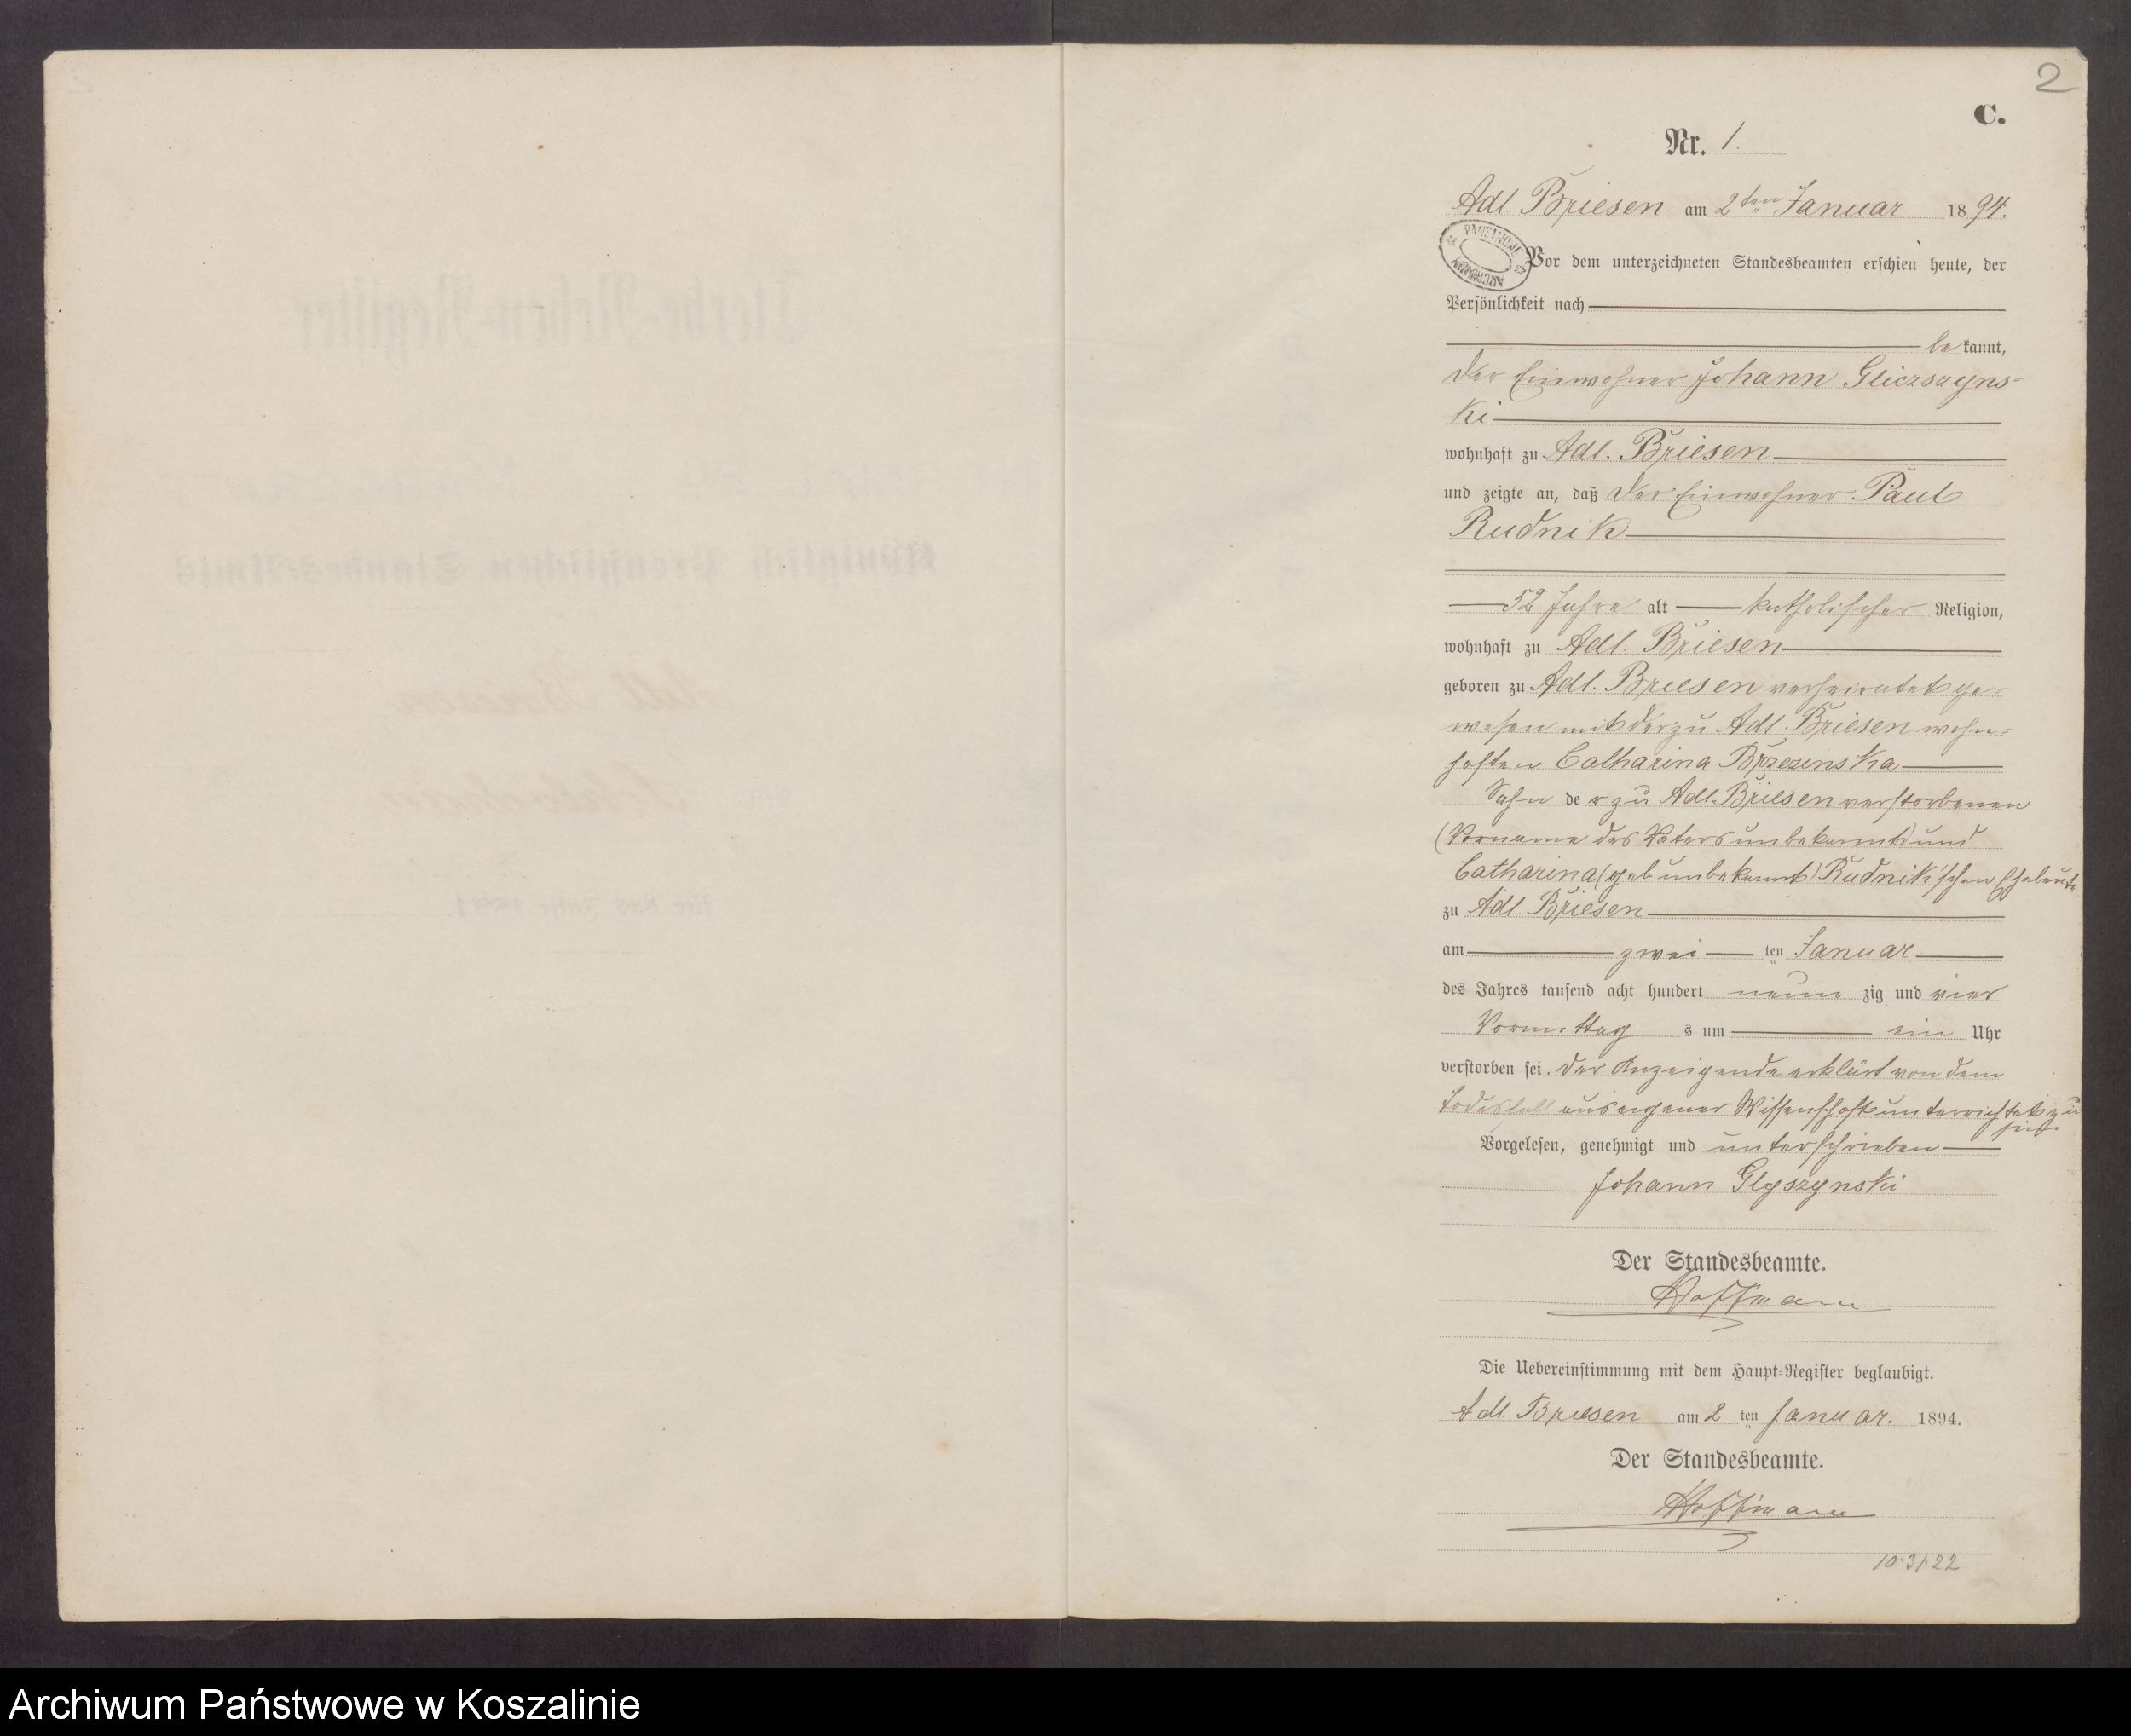 2
C.
Nr. 1.
Adl Briesen am 2ten Januar 1894.
PANSTWOWE ARCHIWUM
Vor dem unterzeichneten Standesbeamten erschien heute, der
Persönlichkeit nach
be kannt,
der Einwohner Johann Gliczszyns-
ki
wohnhaft zu Adl. Briesen
und zeigte an, daß der Einwohner Paul
Rudnik
52 Jahre alt katholischer Religion,
wohnhaft zu Adl. Briesen
geboren zu Adl. Briesen verheiratet ge-
wesen mit der zu Adl. Briesen wohn-
haften Catharina Brzezinska
Sohn der zu Adl. Briesen verstorbenen
(Vorname des Vaters unbekannt) und
Catharina (geb unbekannt) Rudnik'schen Eheleute
zu Adl. Briesen
am zwei ten Januar
des Jahres tausend acht hundert neun zig und vier
Vormittag s um ein Uhr
verstorben sei. Der Anzeigende erklärt von dem
Todesfall aus eigener Wissenschaft unterrichtet zu
sein.
Vorgelesen, genehmigt und unterschrieben
Johann Glyszynski
Der Standesbeamte.
Hoffmann
Die Uebereinstimmung mit dem Haupt-Register beglaubigt.
Adl. Briesen am 2 ten Januar. 1894.
Der Standesbeamte.
Hoffmann
10.31.22
Archiwum Państwowe w Koszalinie